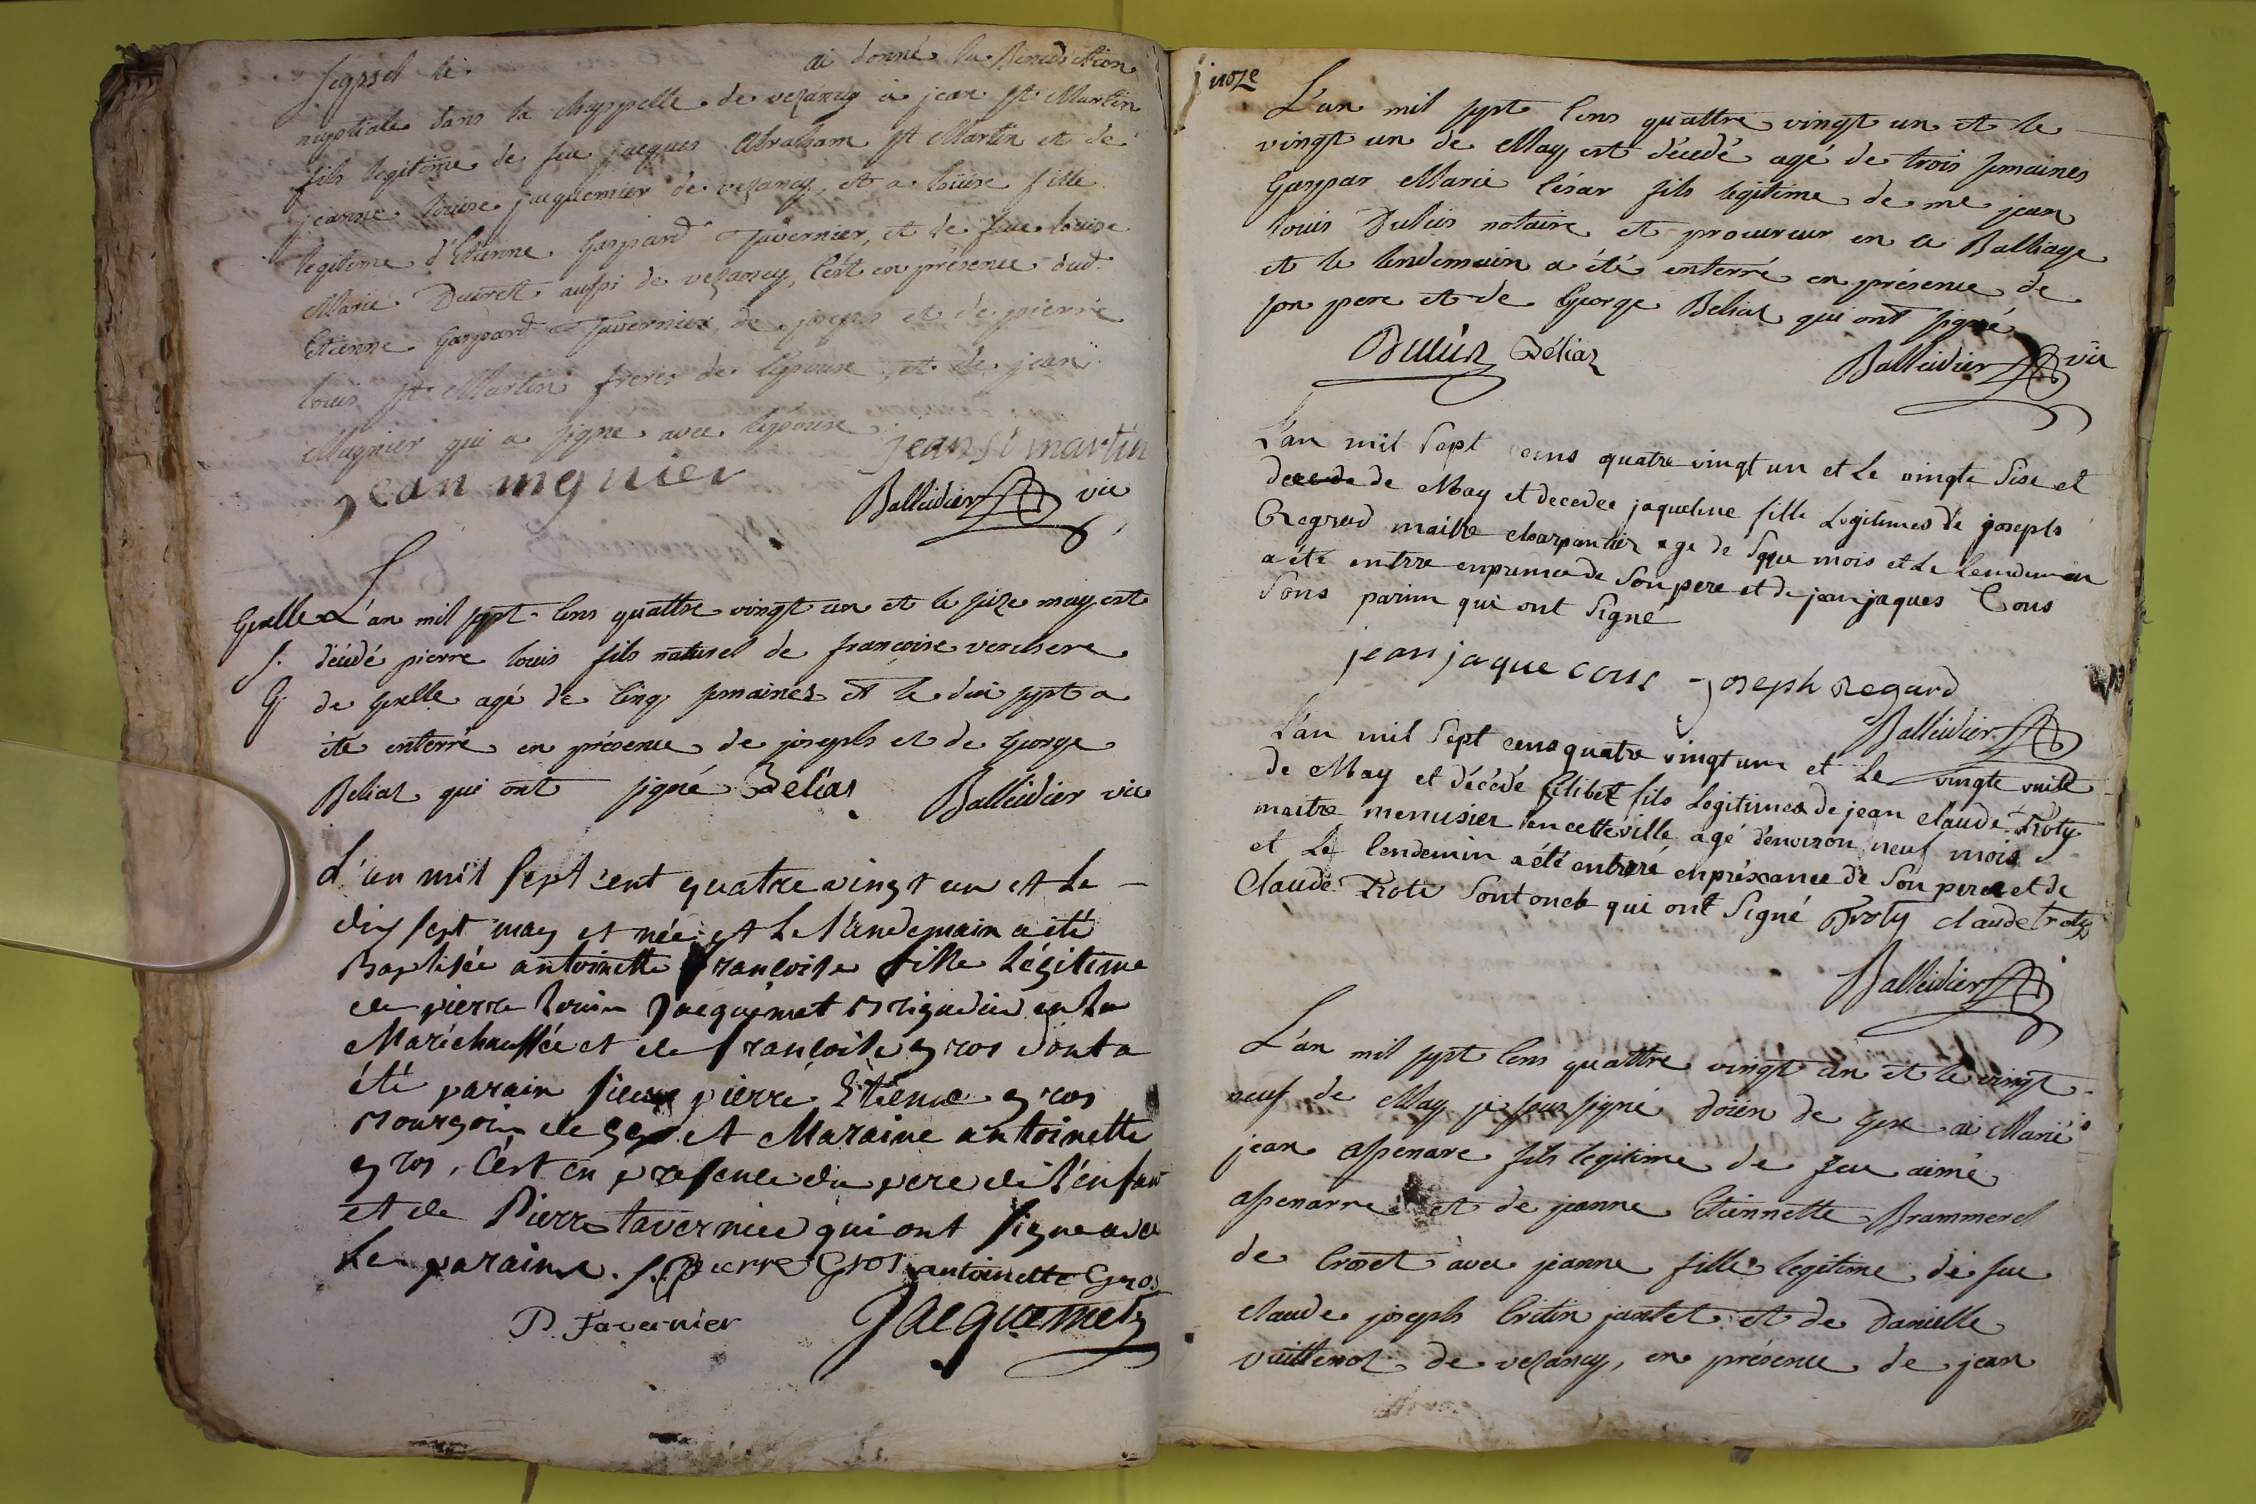 ai donné la Benediction
nuptiale dans la Chappelle de vezancy à jean st Martin
fils legitime de feu jacques Abraham st Martin et de
jeanne louise jacquemier de vezancy, et a loüise fille
legitime d'Etienne Gaspard Tavernier, et de feue louise
Marie Ducret aussi de vezancy, C'est en présence dud.
Etienne Gaspard Tavernier, de joseph et de pierre
louis st Martin freres de l'epoux, et de jean
Magnier qui a signe avec l'epouse
jean st martin
jean mgnier
Balleidier vic
Gexelle L'an mil sept Cens quattre vingt un et le seize may est
décédé pierre louis fils naturel de françoise verchere
de gexelle agé de Cinq semaines et le dix sept a
été enterré en présence de joseph et de George
Beliat qui ont signé Béliaz Balleidier vic
L'an mil sept cent quatre vingt un et Le
dix sept may est née et Le Lendemain a été
Baptisée antoinette françoise fille Légitime
de pierre Louis Jacquemet Brigadier en La
Maréchaussée et de françoise gros dont a
été parain sieur pierre Etienne gros
Bourgois de gex et Maraine antoinette
gros, C'est en presence du pere de l'enfan
et de Pierre tavernier qui ont signe avec
Le paraine. Pierre Gros antoinette Gros
P. Tavernier Jacquemet
L'an mil sept Cens quattre vingt un et le
vingt un de May est décedé agé de trois semaines
Gaspar Marie César fils legitime de me jean
louis Dulcis notaire et procureur en ce Balliage
et le lendemain a été enterré en présence de
son pere et de George Beliat qui ont signé
Béliaz
Balleidier vic
L'an mil Sept cens quatre vingt un et Le vingte Sise et
decede de May et decedee jaqueline fille Legitimes de joseph
Regrad maitre charpantier age de Sept mois et Le lendeman
a été entrre enprence de Son pere et de jean jaques Cous
Sons parin qui ont Signé
jean jaque cous joseph Regard
Balleidier
L'an mil Sept cens quatre vingt un et Le vingte vuitt
de May et décédé filibet fils Legitimes de jean claude Troty
maitre menusier en cette ville agé denviron neuf mois
et Le lendemin a été enterré enpréxance de Son pere et de
Claude Troti Sont oncle qui ont Signé Troty claude troty
Balleidier
L'an mil sept Cens quattre vingt un et le vingt
neuf de May je sous signé doïen de gex ai Marié
jean assenare fils legitime de feu aimé
assenarre et de jeanne Etiennette Brammerel
de Crozet avec jeanne fille legitime de feu
claude joseph Critin jantet et de Danielle
vuillemot de vezancy, en présence de jean